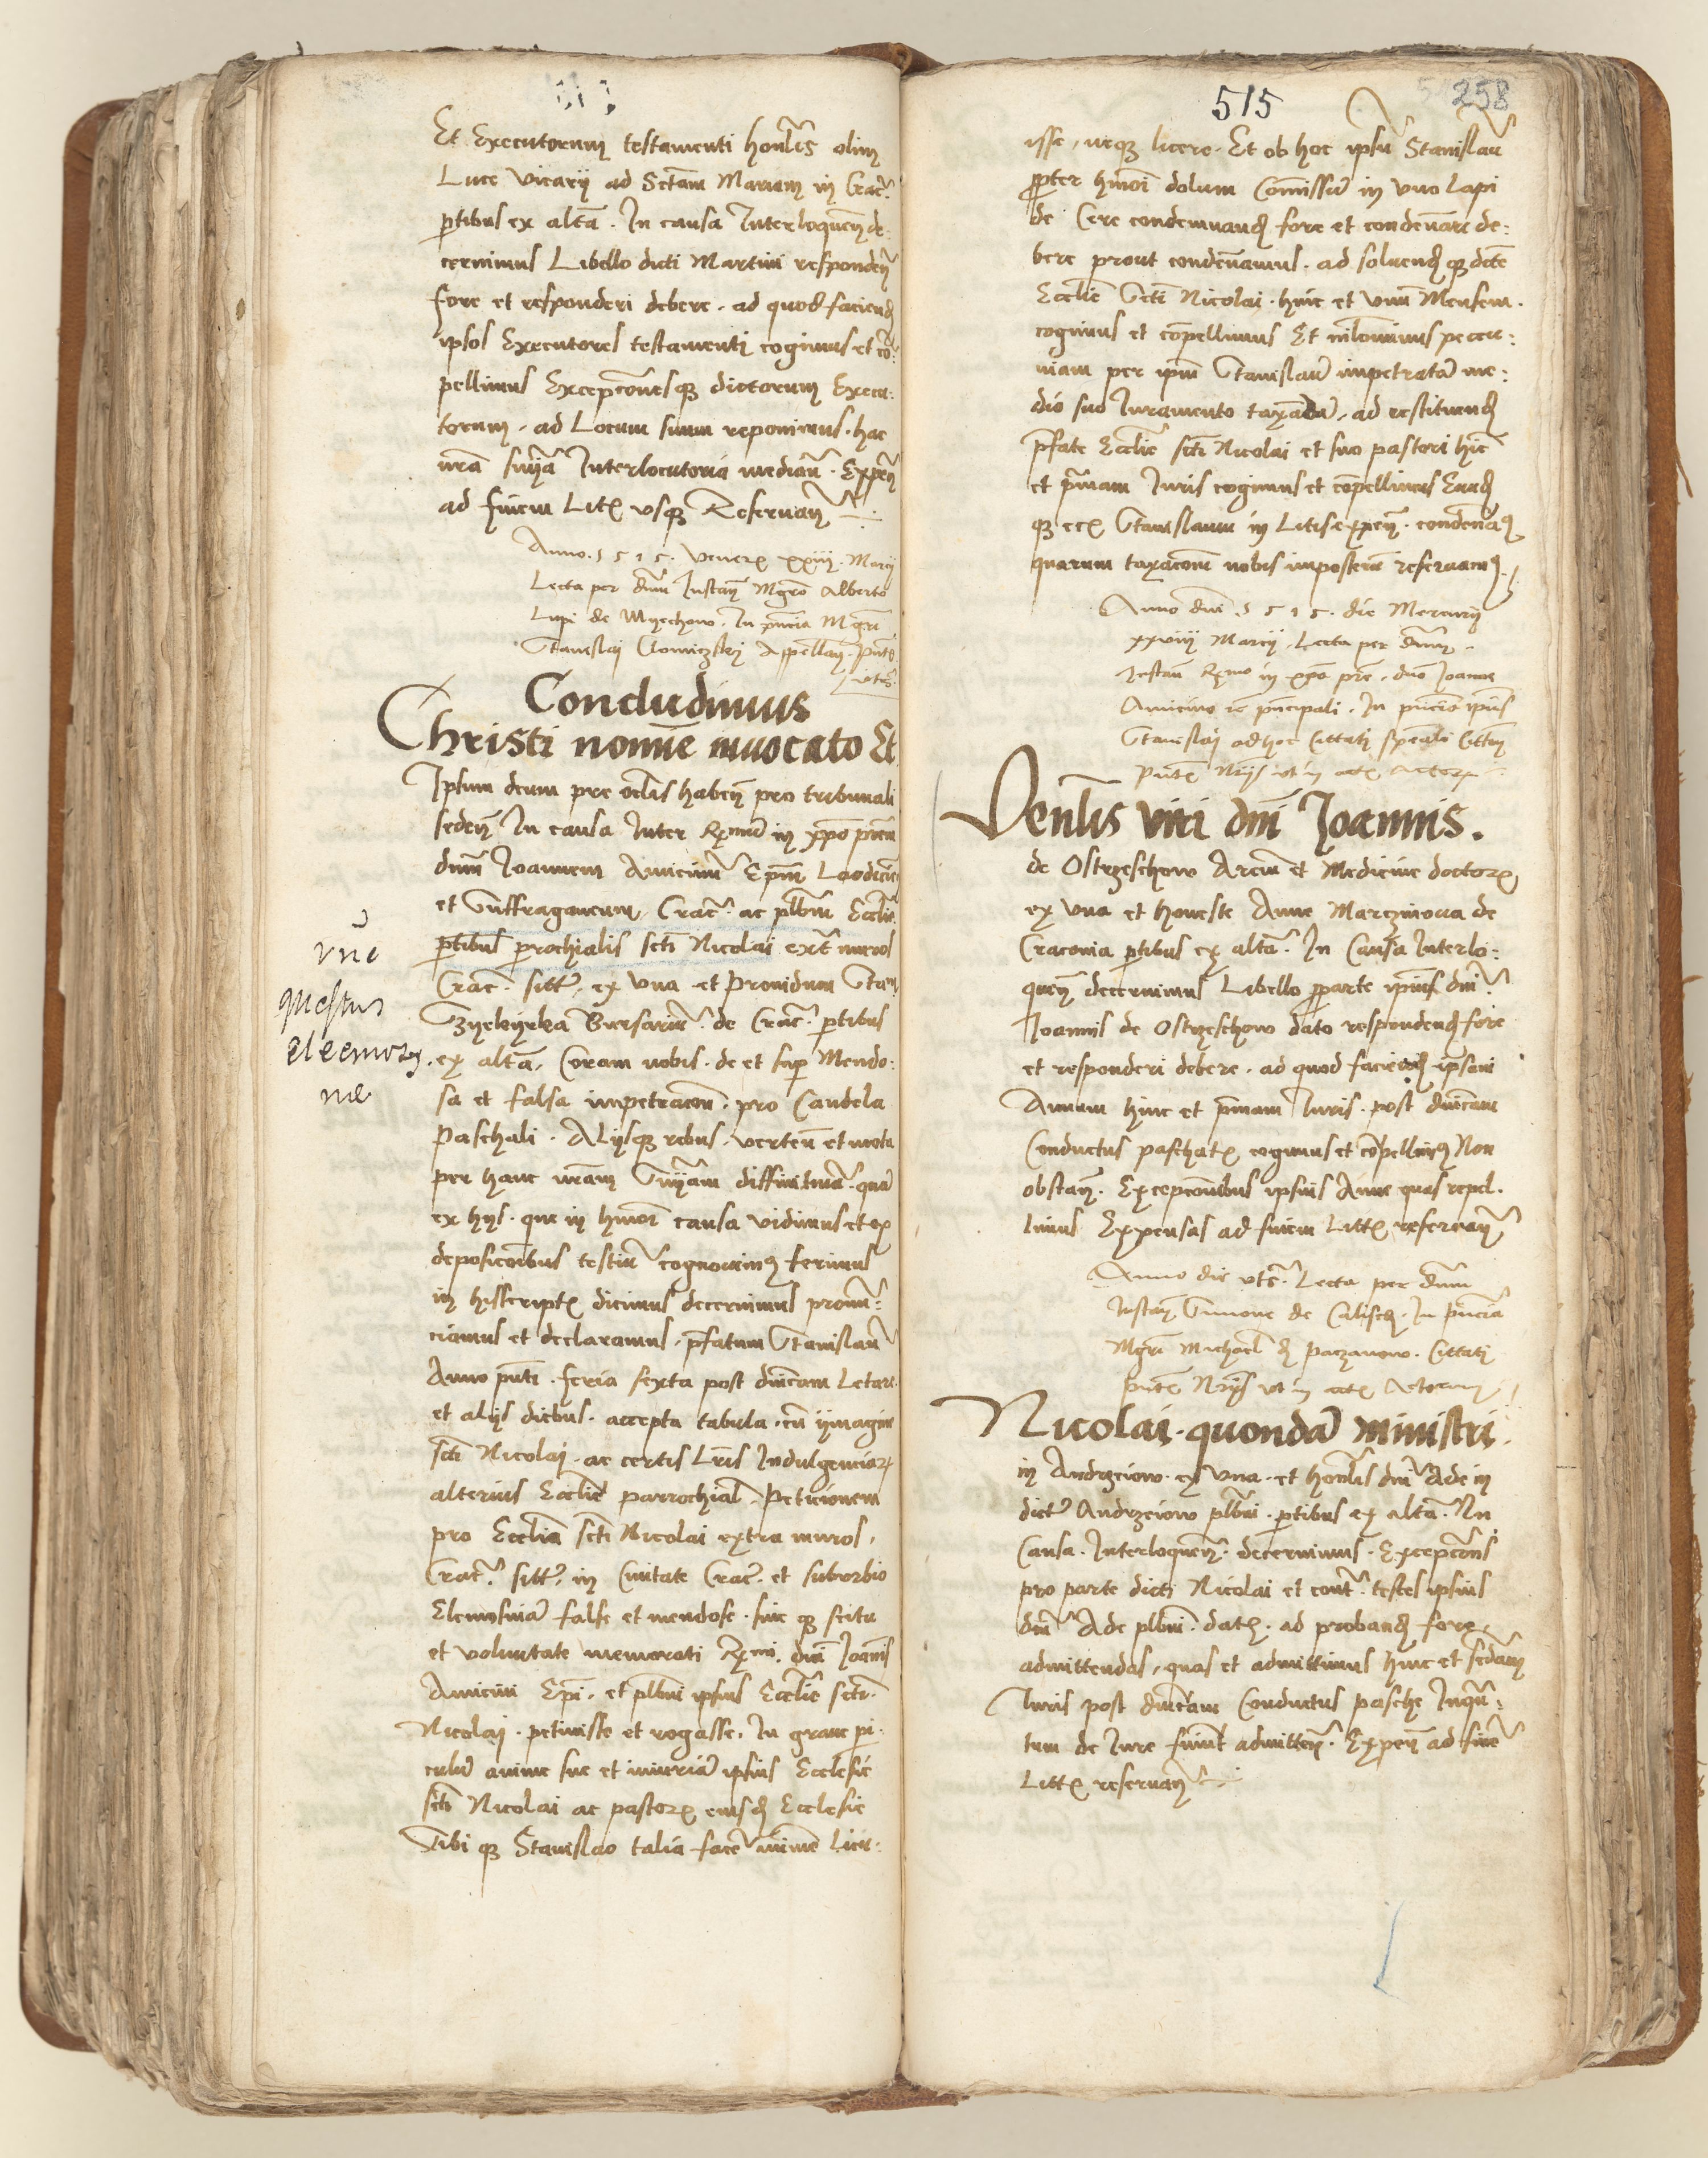 Et Executorum testamenti honl̃is olim
Luce vicarij ad Sctãm Mariam in Crac̃.
ptibus ex altã. In causa Interloquen̄ de:
cernimus Libello dicti Martini responden̄
fore et responderi debere. ad quod faciend̄
ipsos Executores testamenti cogimus et cõ:
pellimus Excepcõnesqȝ dictorum Execu:
torum. ad Locum suum reponimus. hac
nrã snĩa Interlocutoria mediañ. Expeñ
ad finem Litꝭ vsqȝ Reseruañ
Anno. 1515. Venerꝭ xxiij. Marcij
Lecta per dñm Instañ Mgrõ Alberto
Lupi de Myechow. In pñcia Mgri
Stanislaj Appellañ. pñtꝭ
Concludimus
Christi nomiñe inuocato Et
Ipsum deum pre oclis habeñ pro tribunali
sedeñ In causa Inter Rẹmũ in xp̃o prẽm
dñm Joannem Amicinũ Ep̃m Laodicẽ
et Suffraganeum. Crac̃. ac plbñm Ecclie
ptibus prochialis scti Nicolai extꝭ muros
Crac̃. sitt̃. ex vna et Prouidum Stan̄
Bursariũ. de Crac̃. ptibus
ex altã. Coram nobis. de et sup Mendo:
sa et falsa impetracõn. pro Candela
Paschali. Alijsqȝ rebus. verteñ et mota
per hanc nrãm Snĩam diffinitiuã. quã
ex hijs. que in hmõi causa vidimus et ex
deposicõibus testiũ cognouimꝰ ferimus
in hisscriptꝭ dicimus decernimus pronũ:
ciamus et declaramus. pfatum Stanislaũ
Anno pñti. feria sexta post dñicam Letare.
et alijs diebus. accepta tabula. cũ ymagine
scti Nicolaj. ac certis Lrĩs Indulgenciarꝝ
alterius Ecclie parrochialꝭ. Peticionem
pro Ecclia scti Nicolai extra muros.
Crac̃. sitt̃. in Ciuitate Crac̃. et suburbio
Elemosinã false et mendose. sine qȝ scitu
et voluntate memorati Rẹmi. dñi Joannis
Amicini Epĩ. et plbñi ipsius Ecclie scti.
Nicolaj. petiuisse et rogasse. In graue pi:
culũ anime sue et iniuriã ipsius Ecclesie
scti Nicolai ac pastorꝭ eiusd̄ Ecclesie
Sibi qȝ Stanislao talia facẽ minime licu:
vñc
questus
eleemozy
ne
515
258
isse, neqȝ licere. Et ob hoc ipsũ Stanislaũ
ppter hmõi dolum Cõmissũ in vno Lapi
de Cere condemnand̄ fore et condeñare de:
bere prout condeñamus. ad soluend̄ qȝ dcte
Ecclie Scti Nicolai. hinc et vnũ Mensem.
cogimus et cõpellimus Et nilomimus pecu:
niam per ipm̃ Stanislaũ impetratã me:
dio suo Iuramento taxãdã. ad restituend̄
pfate Ecclie scti Nicolai et suo pastori hĩc
et prĩmam Iuris cogimus et cõpellimus Eund̄
qȝ Stanislaum in Litis expeñ. condeñamꝰ
quarum taxacõm nobis imposterũ reseruamꝰ.
Anno dñi 1515. die Mercurij
xxviij Marcij. Lecta per dñm.
Instañ Rẹmo in xp̃o prẽ. dño Joanne
Amicino re principali. In pñcia ipiũs
Stanislaj ad hoc Cittati
Pñtꝭ Nrijs vt in actꝭ actorꝝ
Venl̃is viri dñi Joannis.
de Ostrzeschow Arciũ et Medicine doctorꝭ
ex vna et honeste Anne Marczinowa de
Cracouia ptibus ex altã. In Causa Interlo:
queñ decernimus Libello pparte ipsius dñi.
Joannis de Ostrzeschow dato respondend̄ fore
et responderi debere. ad quod faciend̄ ipsam
Annam hinc et prĩmam Iuris. post dñicam
Conductus paschatꝭ cogimus et cõpellimꝰ Non
obstañ. Excepcõnibus ipsius Anne quas repel.
limus Expensas ad finem Littꝭ reseruañ
Anno die vtš. Lecta per dñm
Instañ Simone de Calisch. In pñcia
Mgri Michael d̄ Paczanow. Cittati
pñtꝭ Nrijs vt in actꝭ Actorum
Nicolai. quondã ministri.
in Andrzeiow. ex vna. et honl̃is dñi Ade in
dictt̃ Andrzeiow plbñi. ptibus ex altã. In
Causa. Interloqueñ. decernimus. Excepcõns
pro parte dicti Nicolai et cont̃. testes ipsius
dñi Ade plbñi. datꝭ. ad proband̄ fore
admittendas, quas et admittimus hinc et sc̃dam
Iuris post dñicam Conductus pasche Inquã:
tum de Iure fuiñt admitteñ. Expeñ ad finẽ
Littꝭ reseruañ